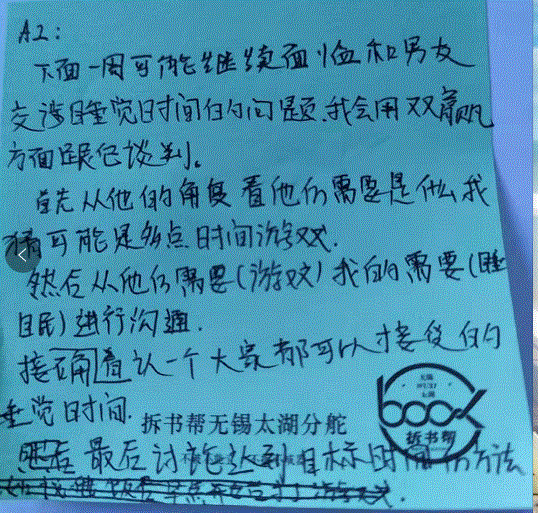 A2:
下面一周可能继续面临和男友
交涉睡觉时间的问题.我会用双赢
方面跟他谈判。
首先从他的角度看他的需要是什么我
猜可能是多点时间游戏.
然后从他的需要(游戏)我的需要(睡
眠)进行沟通.
接确着认一个大家都可以接受的
垂觉时间.
拆书帮无锡太湖分舵
book
拆书帮
然后最后讨论达到目标时间的方法